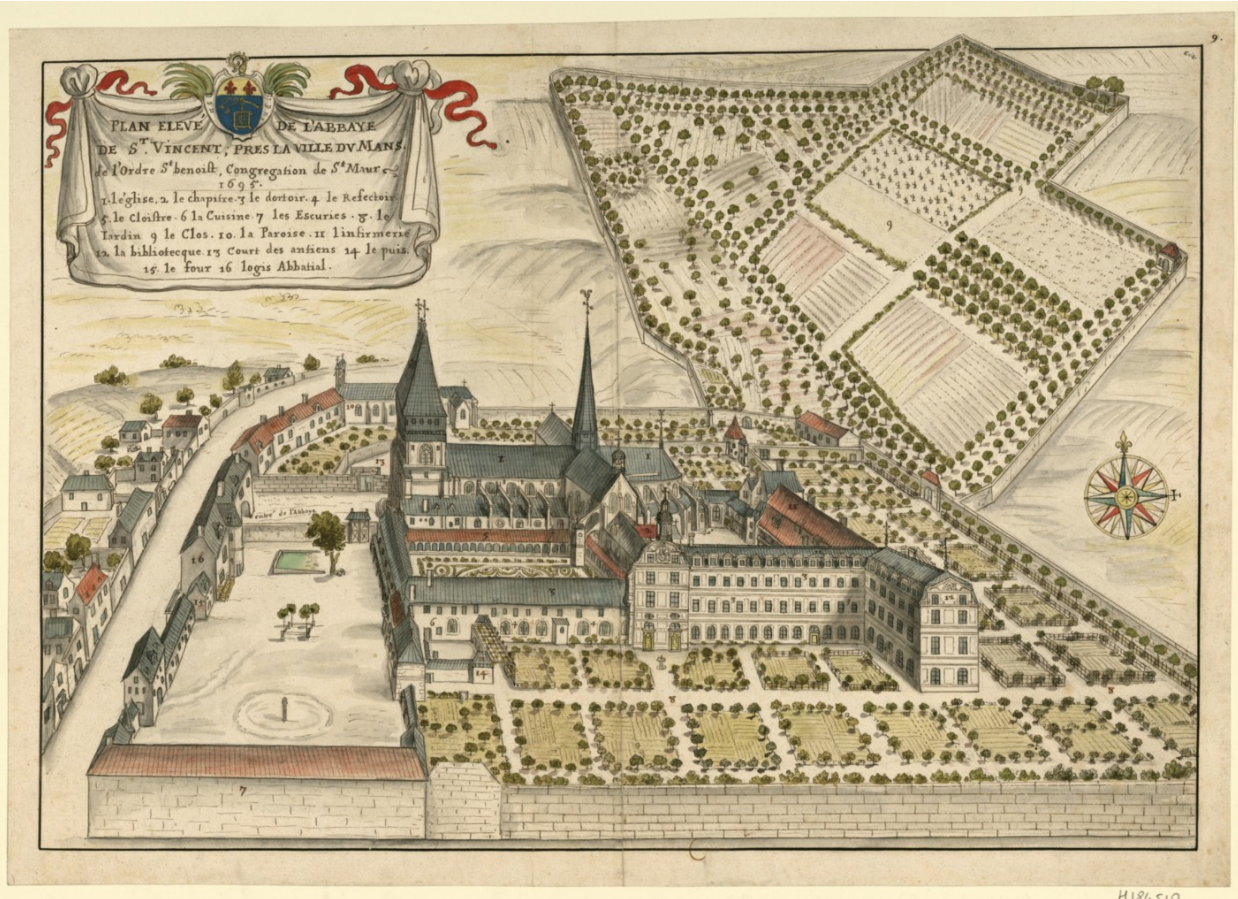 9.
PLAN ELEVÉ DE L'ABBAYE
DE S.T VINCENT, PRES LA VILLE DV MANS.
de l'Ordre St benoist, Congregation de St Maur
1695.
1. leglise, 2 le chapitre. 3 le dortoir. 4 le Refectoir
5. le Cloistre. 6 la Cuisine. 7 les Escuries. 8. le
Iardin 9 le Clos. 10. la Paroise. 11 l'infirmerie
12. la bibliotecque. 13 Court des antiens 14 le puis.
15. le four 16 logis Abbatial.
9
10
1
1
13
entré de l'Abbaye
16
5
11
3
12
6
4
4
14
8
8
7